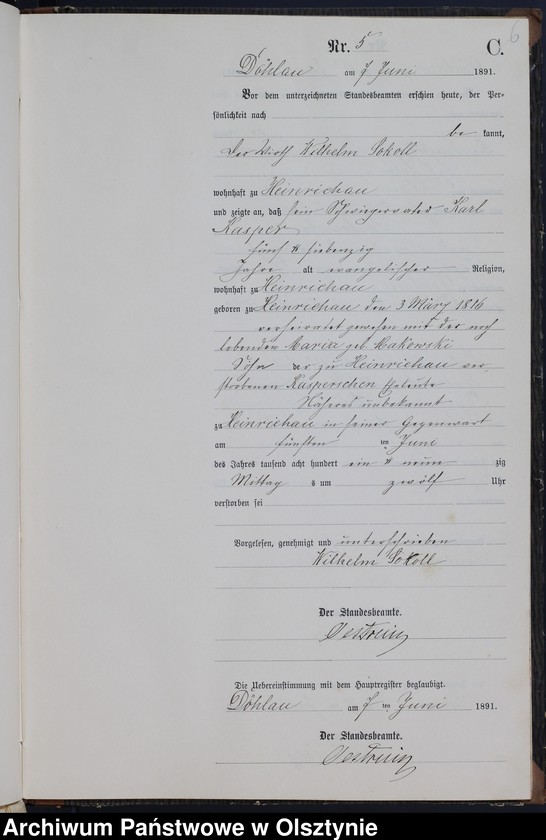 6
Nr. 5 C.
Döhlau am 7 Juni 1891.
Vor dem unterzeichneten Standesbeamten erschien heute, der Per-
sönlichkeit nach
be kannt,
der Wirth Wilhelm Sokoll
wohnhaft zu Heinrichau
und zeigte an, daß sein Schwiegervater Karl
Kasper
fünf u siebenzig
Jahre alt evangelischer Religion,
wohnhaft zu Heinrichau
geboren zu Heinrichau den 3 März 1816
verheiratet gewesen mit der noch
lebenden Maria geb. Makowski
Sohn der zu Heinrichau ver
storbenen Kasperschen Eheleute
Näheres unbekannt
zu Heinrichau in seiner Gegenwart
am fünften ten Juni
des Jahres tausend acht hundert ein u neun zig
Mittag s um zwölf Uhr
verstorben sei
Vorgelesen, genehmigt und unterschrieben
Wilhelm Sokoll
Der Standesbeamte.
Die Uebereinstimmung mit dem Hauptregister beglaubigt.
Döhlau am 7 ten Juni 1891.
Der Standesbeamte.
Archiwum Państwowe w Olsztynie